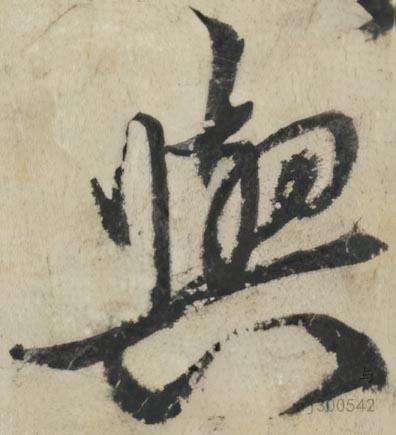 與
与
j300542